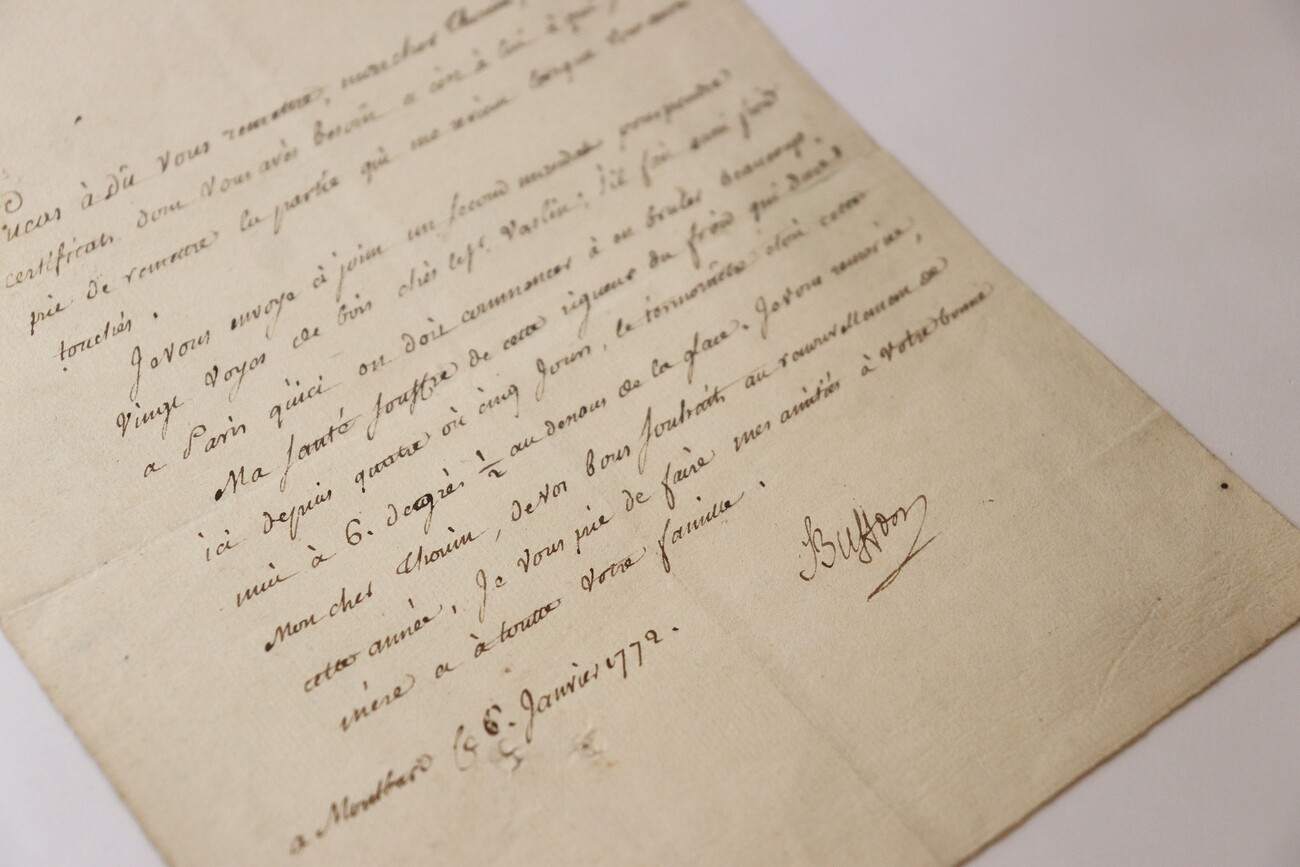 ucas à Dû vous remettre, mon cher Thouin,
certificats dom vous avès besoin a çen à lui à qui
prie de remettre la partie qui me revien lorsque vous aurès
touchés.
Je vous envoye çi joim un second mandat pourprendre
vingt voyes de bois chès le Sr. Vaslin; s'il fait aussi froid
a Paris qu'ici on doit commencer à en bruler beaucoup.
Ma santé souffre de cette rigueur du froid qui dure
ici depuis quatre où cinq jours, le termomètre étoit cette
nuit à 6. degrès 1/2 au dessous de la glace. Je vous remercie,
Mon cher Thouin, de vos bons souhaits au renouvellement de
cette année, Je vous prie de faire mes amitiés à votre bonne
mère a à toutte votre famille.
Buffon
a Montbard Ce 6. Janvier 1772.